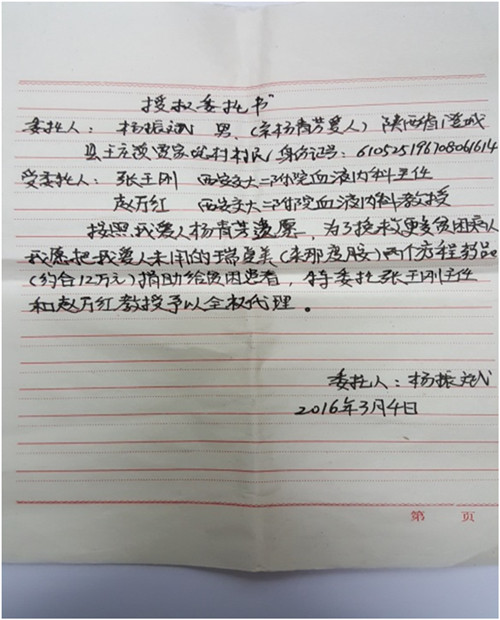 授权委托书
委托人：杨振斌 男，(系杨青芳爱人) 陕西省澄城
县王庄镇贾家洼村村民，身份证号：610525196708061614
受委托人：张王刚 西安交大二附院血液内科主任
赵万红 西安交大二附院血液内科教授
按照我爱人杨青芳遗愿，为了挽救更多贫困病人
我愿把我爱人未用的瑞复美(来那度胺)两个疗程药品
(约合12万元)捐助给贫困患者，特委托张王刚主任
和赵万红教授予以全权代理。
委托人：杨振斌
2016年3月4日
第 页